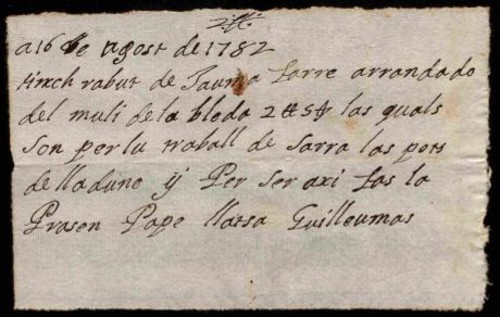 a 16 de agost de 1782
tinch rabut de Jauma torre arrandado
del muli de la bleda 2 ħ 5 ß las quals
son per lu traball de sarra las pots
de lladuno y Per ser axi fas la
Prasen Pape llatsa Guilleumas